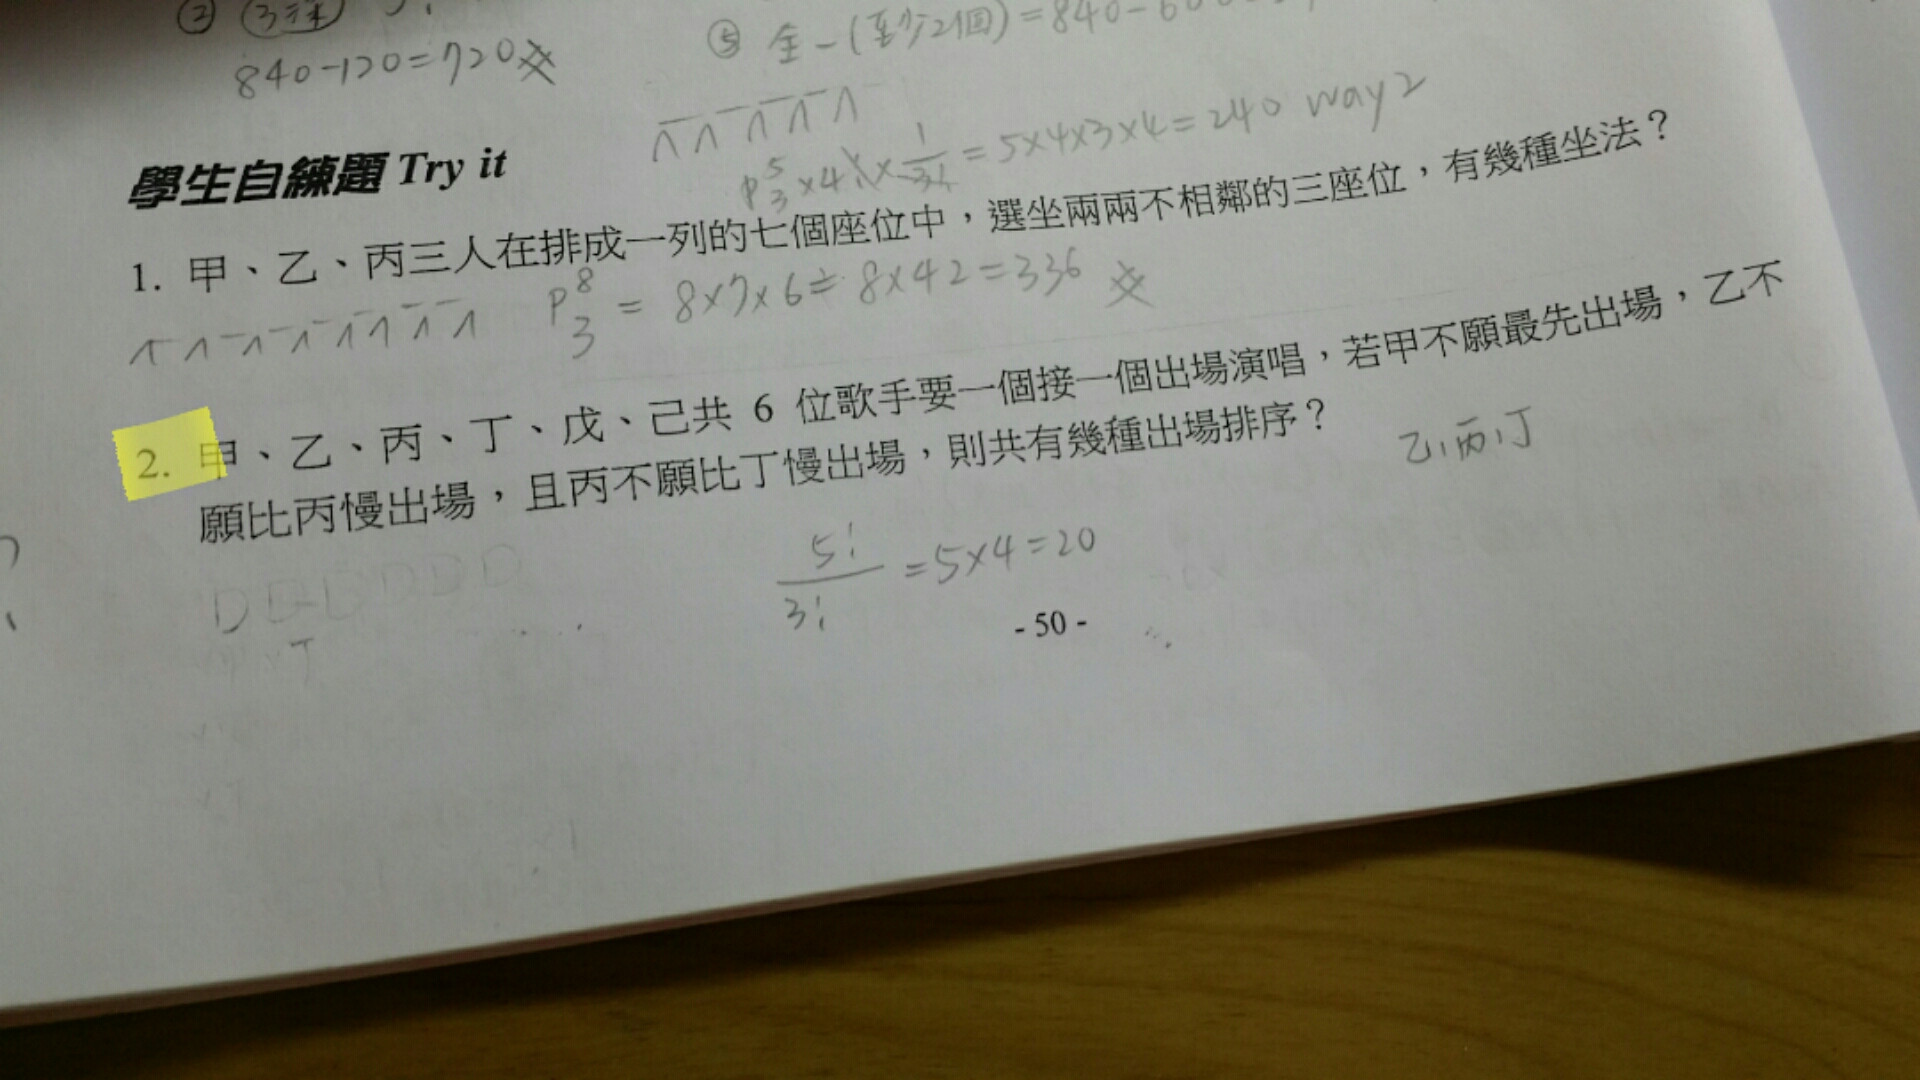 ② ③注
840-120=720
⑤ 全-(至少2個)=840-600
P⁵₃×4!×1/3! = 5×4×3×4=240 way2
學生自練題 Try it
1. 甲、乙、丙三人在排成一列的七個座位中，選坐兩兩不相鄰的三座位，有幾種坐法？
P⁸₃ = 8×7×6=8×42=336
2. 甲、乙、丙、丁、戊、己共 6 位歌手要一個接一個出場演唱，若甲不願最先出場，乙不
願比丙慢出場，且丙不願比丁慢出場，則共有幾種出場排序？
乙,丙,丁
5!/3! =5×4=20
- 50 -